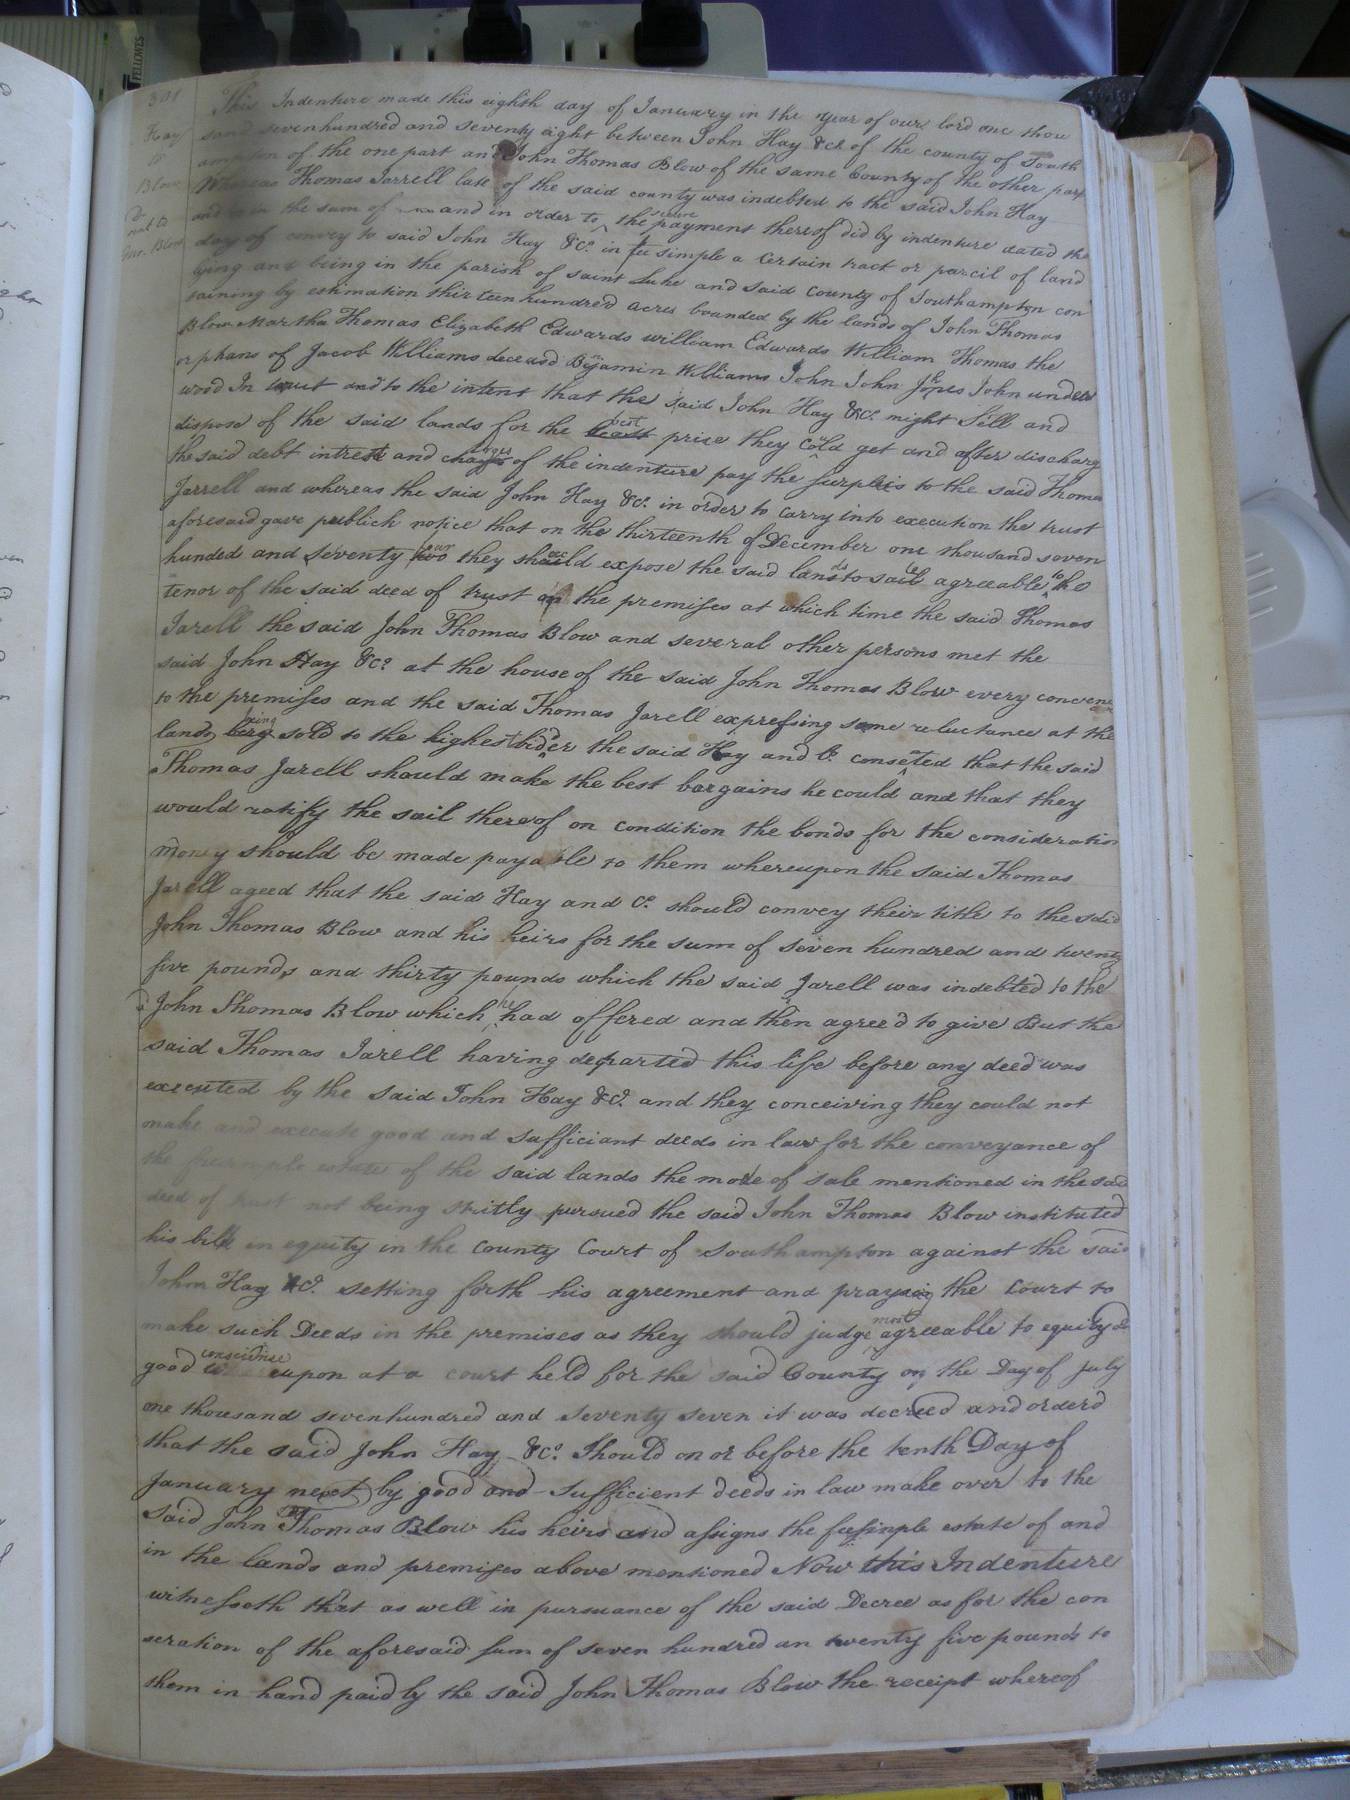 FELLOWES
301
Hay
to
Blow
This Indenture made this eighth day of January in the year of our lord one thou
sand sevenhundred and seventy eight between John Hay &Co of the county of South
ampton of the one part and John Thomas Blow of the same County of the other part
Whereas Thomas Jarrell late of the said county was indebted to the said John Hay
and in the sum of and in order to secure the payment thereof did by indenture dated the
day of convey to said John Hay &Co. in fee simple a Certain tract or parcil of land
lying and being in the parish of saint Luke and said County of Southampton con
taining by estimation thirteen hundred acres bounded by the lands of John Thomas
Blow Martha Thomas Elizabeth Edwards william Edwards William Thomas the
orphans of Jacob Williams deceasd Binjamin Williams John John Jones John under
wood In trust and to the intent that the said John Hay &Co. might Sell and
dispose of the said lands for the best price they could get and after discharg
the said debt intrest and charges of the indenture pay the surplus to the said Thomas
Jarrell and whereas the said John Hay &Co. in order to carry into execution the trust
aforesaid gave publick notice that on the thirteenth of December one thousand seven
hunded and Seventy four they should expose the said lands to sale agreeable to the
tenor of the said deed of trust on the premises at which time the said Thomas
Jarell the said John Thomas Blow and several other persons met the
said John Hay &Co at the house of the said John Thomas Blow every convene
to the premises and the said Thomas Jarell expressing some reluctance at the
lands being sold to the highest bidder the said Hay and Co. consented that the said
Thomas Jarell should make the best bargains he could and that they
would ratify the sail thereof on condition the bonds for the consideration
money should be made payable to them whereupon the said Thomas
Jarell ageed that the said Hay and Co. should convey their title to the said
John Thomas Blow and his heirs for the sum of seven hundred and twenty
five pounds and thirty pounds which the said Jarell was indebted to the
John Thomas Blow which he had offered and then agree'd to give But the
said Thomas Jarell having departed this life before any deed was
executed by the said John Hay &Co. and they conceiving they could not
make and execute good and sufficiant deeds in law for the conveyance of
the feesimple estate of the said lands the mode of sale mentioned in the said
deed of trust not being stritly pursued the said John Thomas Blow instituted
his bill in equity in the County Court of Southampton against the said
John Hay &Co. setting forth his agreement and praying the Court to
make such Deeds in the premises as they should judge most agreeable to equity &
good conscience upon at a court held for the said County on the Day of July
one thousand sevenhundred and seventy seven it was decreed and orderd
that the said John Hay &Co. Should on or before the tenth Day of
January next by good and sufficient deeds in law make over to the
said John Thomas Blow his heirs and assigns the feesinple estate of and
in the lands and premises above mentioned Now this Indenture
witnesseth that as well in pursuance of the said Decree as for the con
seration of the aforesaid sum of seven hundred an twenty five pounds to
them in hand paid by the said John Thomas Blow the receipt whereof